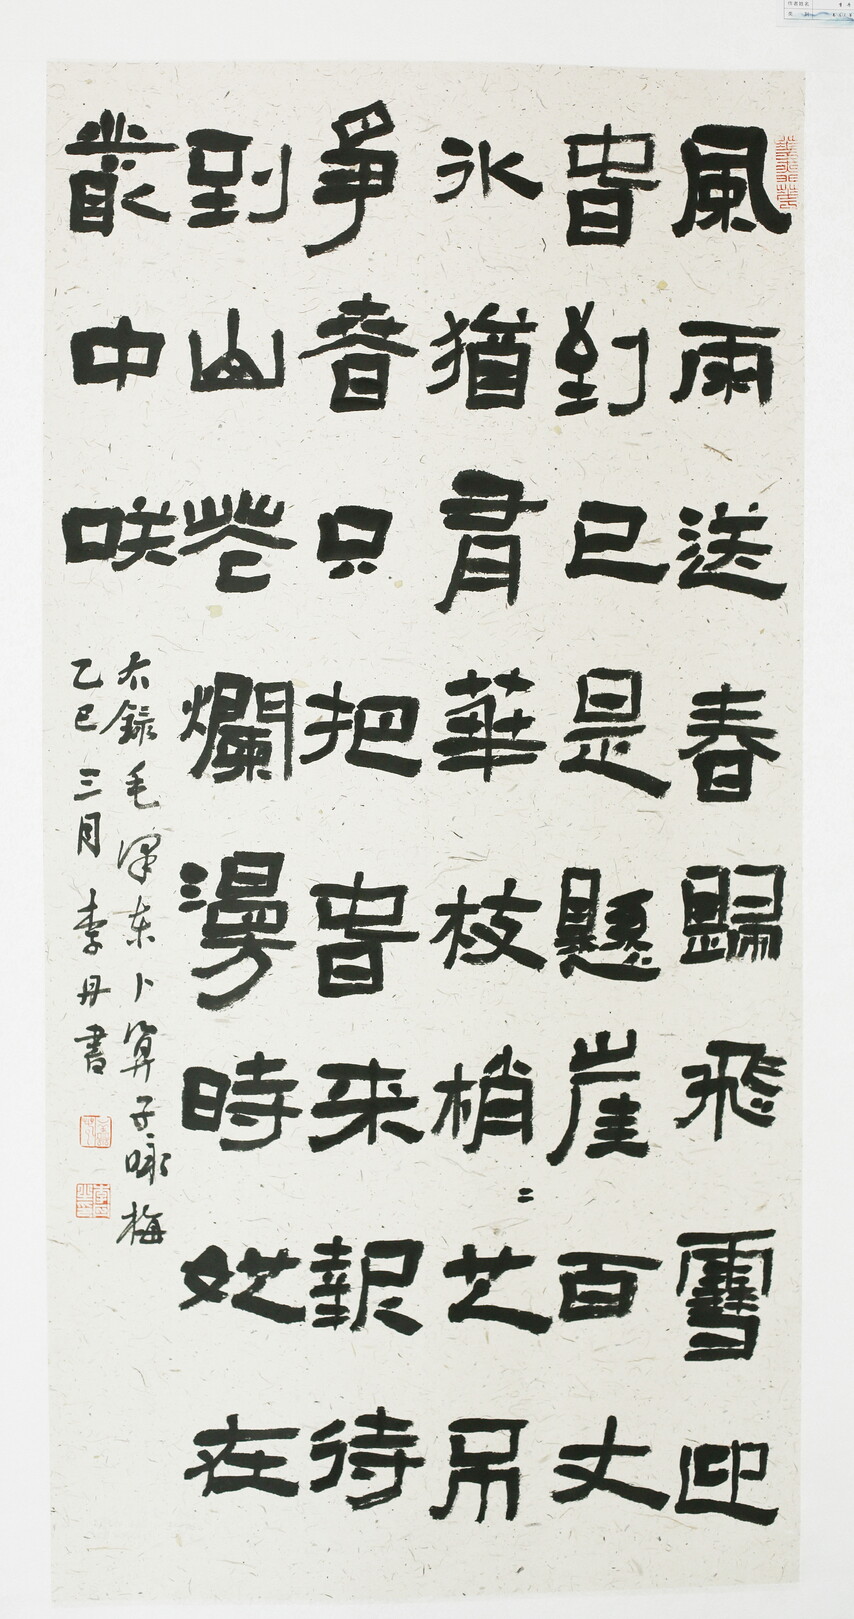 風雨送春歸飛雪迎
旾到已是懸崖百丈
冰猶有華枝梢〻也不
爭春只把旾来報待
到山花爛漫時她在
叢中咲
右録毛泽东卜算子咏梅
乙巳三月李丹書